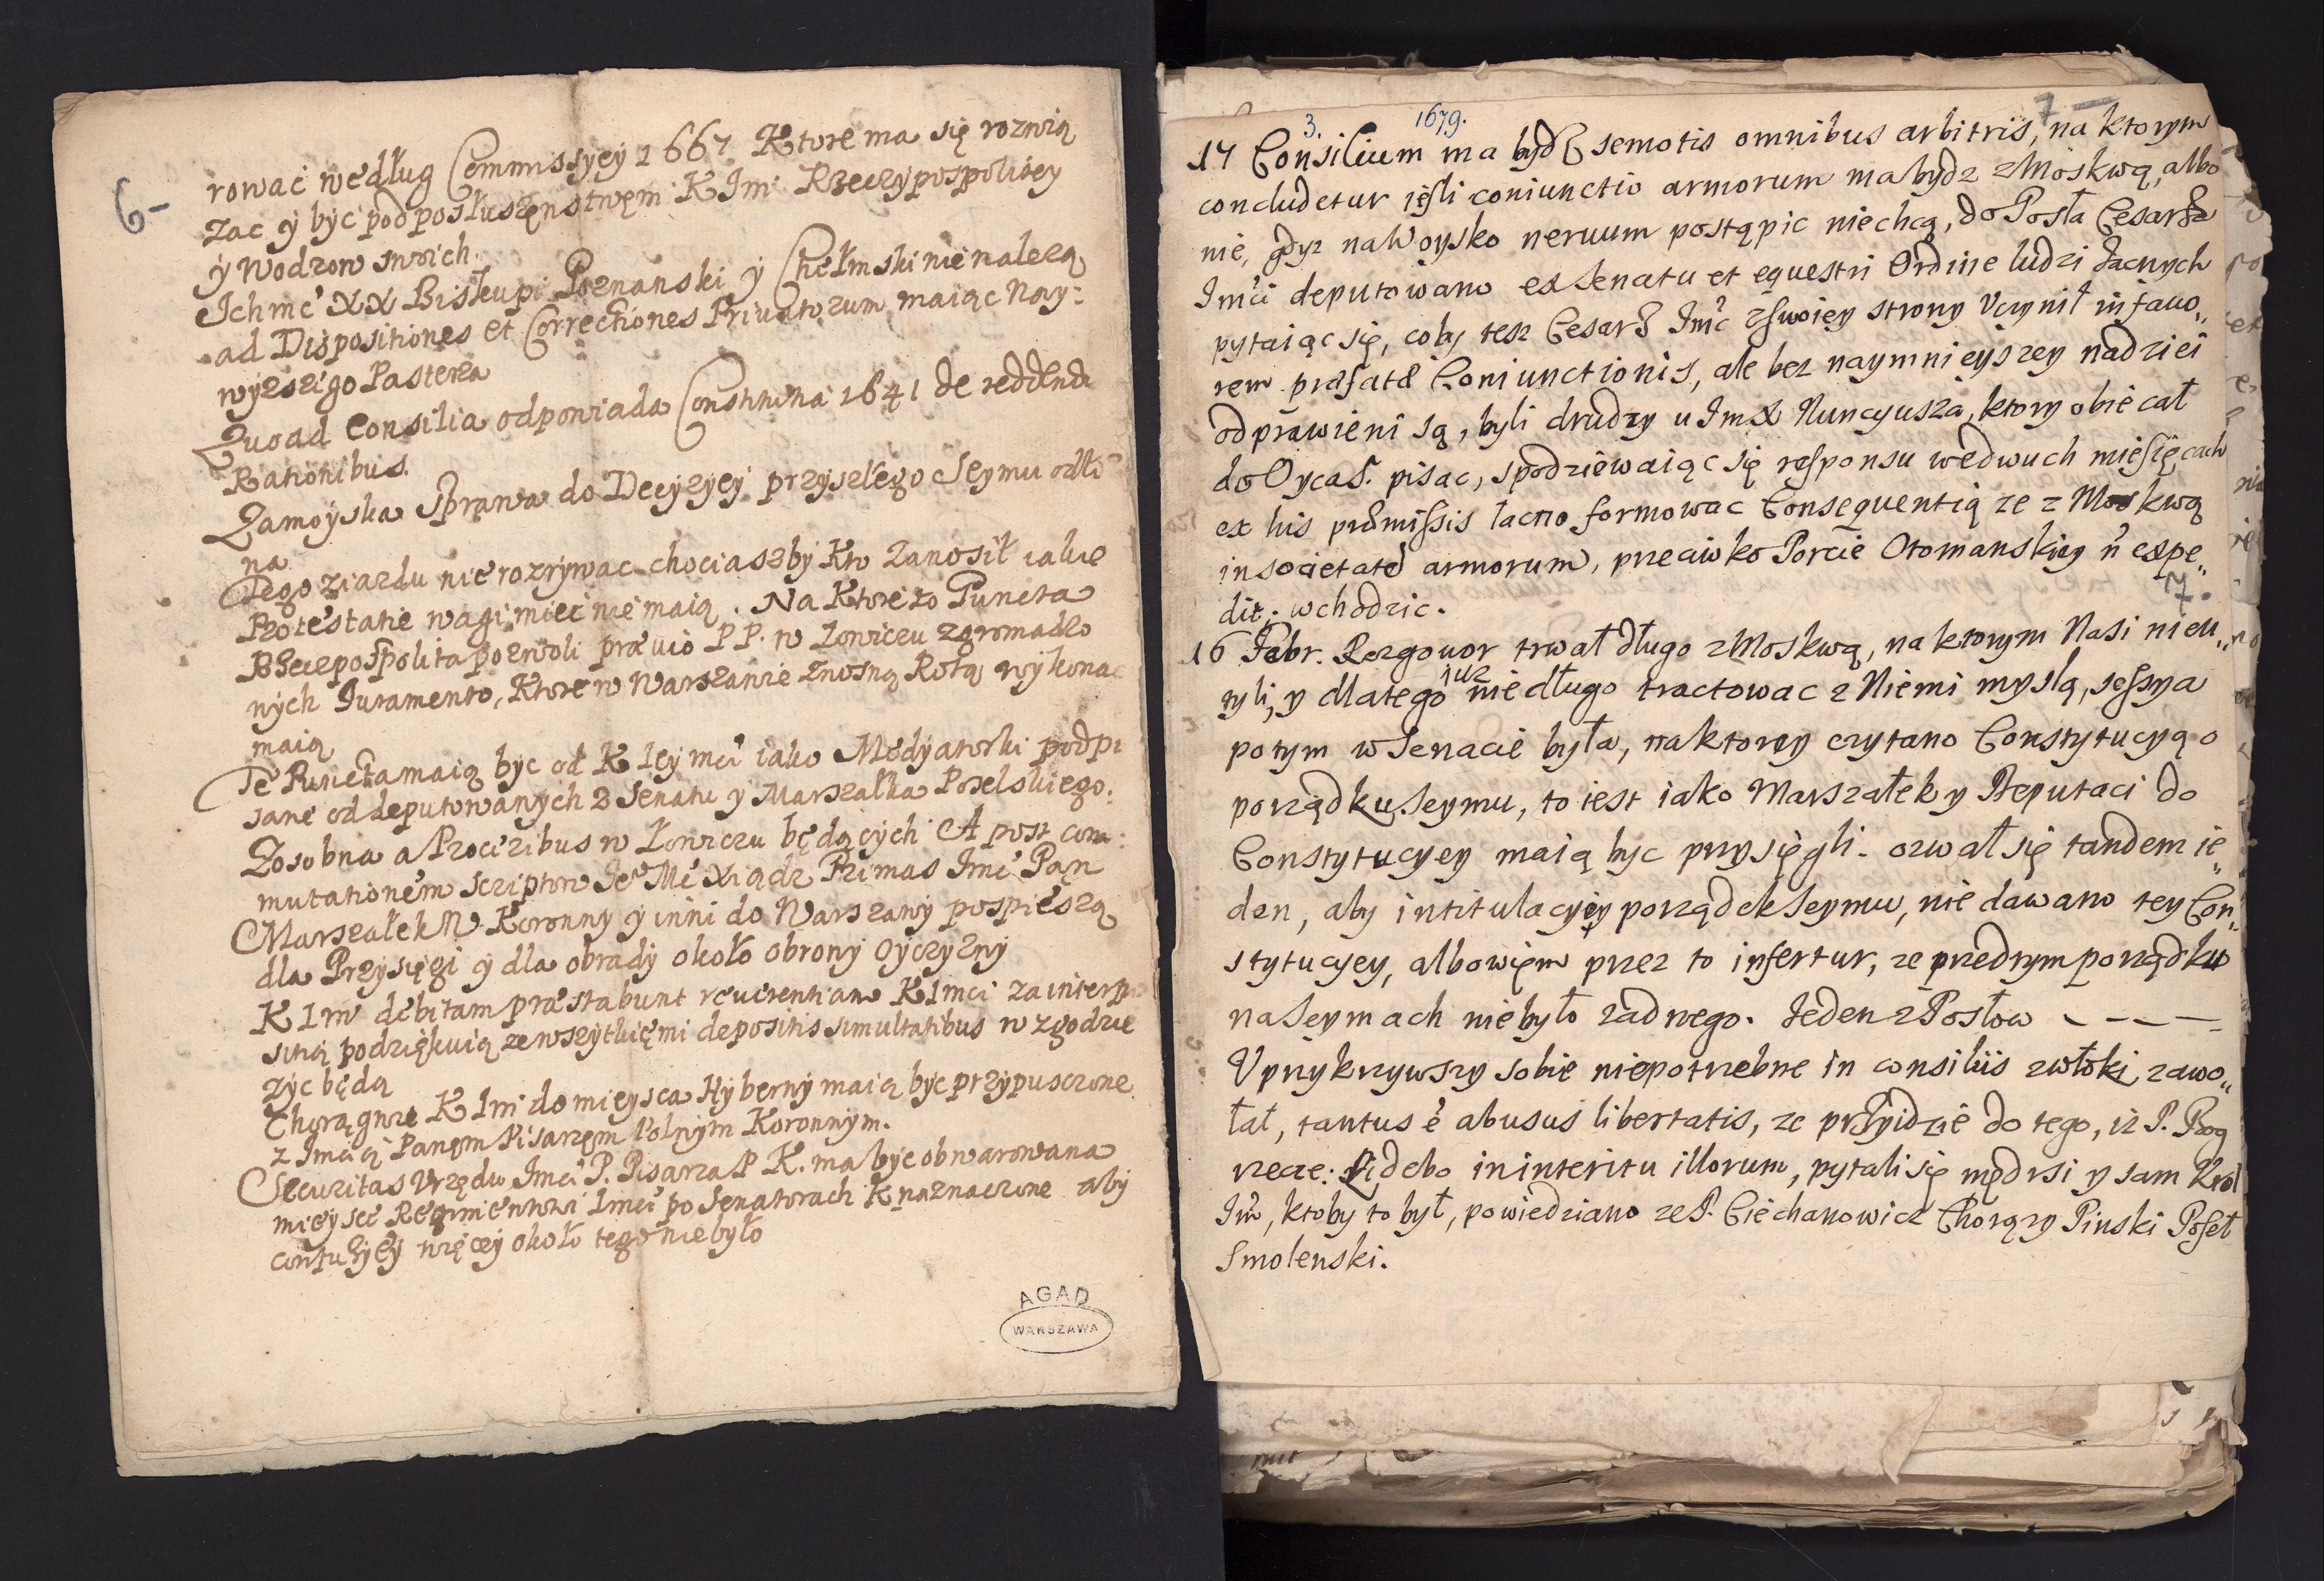 6-
rowac według Commissyey 1667 Ktore ma się rozwią
zac y byc pod posłuszęnstwęm K Im Rzeczypospolitey
y Wodzow swoich.
Ichmć XX Biskupi Poznanski y Chełmski nie nalezą
ad Dispositiones et Correctiones Privatorum maiąc Nay:
wyzszego Pasterza
Quoad Consilia odpowiada Constitutia 1641 de reddendi
Rationibus.
Zamoyska Sprawa do Decyzyey przyszłego Seymu odło
na
Tego ziazdu nie rozrywac chociaszby Kto zanosił iakie
Protestatie wagi miec nie maią. Na Ktore to Puncta
Rzeczpospolita pozwoli prævio PP. w Łowiczu zgromadzo
nych Iuramento, Ktore w Warszawie znosną Rotą wykonac
maią
Te Puncta maią byc od K Iey mci iako Medyatorki podpi
sane od deputowanych z Senatu y Marszałka Poselskiego.
Zosobna a Proceribus w Łowiczu będących A post com:
mutationem scriptow Ie Mć Xiądz Primas Imć Pąn
Marszałek W Koronny y inni do Warszawy pospieszą
dla Przysięgi y dla obrady około obrony Oyczyzny
K Im debitam præstabunt reverentiam K Imci za interpo
sitią podziękuią ze wszytkięmi depositis simultatibus w zgodzie
zyc będą
Chorągwie K Im do mieysca Hyberny maią byc przypuszczone
z Imcią Panęm Pisarzęm Polnym Koronnym.
Securitas Urzędu Imci P. Pisarza P K. ma byc obwarowana
mieysce Regimentowi Imci po Senatorach K naznaczone aby
confuzyey więcey około tego niebyło
AGAD
WARSZAWA
3. 1679. 7
17 Consilium ma bydz semotis omnibus arbitriis, na ktorym
concludetur iesli coniunctio armorum ma bydz z Moskwą, albo
nie, gdyz na Woysko nervum postąpic niechcą, do Posła Cesarza
Imci deputowano ex Senatu et equestri Ordine ludzi zacnych
pytaiąc się, coby tesz Cesarz Imc z swoiey strony Uczynił in favo„
rem præfatæ Coniunctionis, ale bez naymnieyszey nadziei
odprawieni są, byli drudzy u Im X Nuncyusza, ktory obiecał
do Oyca S. pisac, spodziewaiąc się responsu wedwuch miesięcach
ex his præmissis łacno formowac Consequentią ze z Moskwą
in societatē armorum, przeciwko Porcie Otomanskiey n̄ expe„
dit: wchodzic.
7.
16 Febr. Rozgowor trwał długo z Moskwą, na ktorym Nasi nieu„
zyli, y dlatego iuz niedługo tractowac z Niemi myslą, sessya
potym w Senacie była, na ktorey czytano Constytucyą o
porządku Seymu, to iest iako Marszałek y Deputaci do
Constytucyey maią byc przysięgli. ozwał się tandem ie„
den, aby intitulacyey porządek Seymu, nie dawano tey Con„
stytucyey, albowięm przez to infertur, ze przedtym porządku
na Seymach niebyło zadnego. Jeden z Posłow - - - -
Uprzykrzywszy sobie niepotrzebne in consiliis zwłoki zawo„
łał, tantus ē abusus libertatis, ze przyidzie do tego, iz P. Bog
rzecze: Ridebo in interitu illorum, pytali się mędrsi y sam Krol
Im, ktoby to był, powiedziano ze P. Ciechanowicz Chorązy Pinski Poseł
Smolenski.